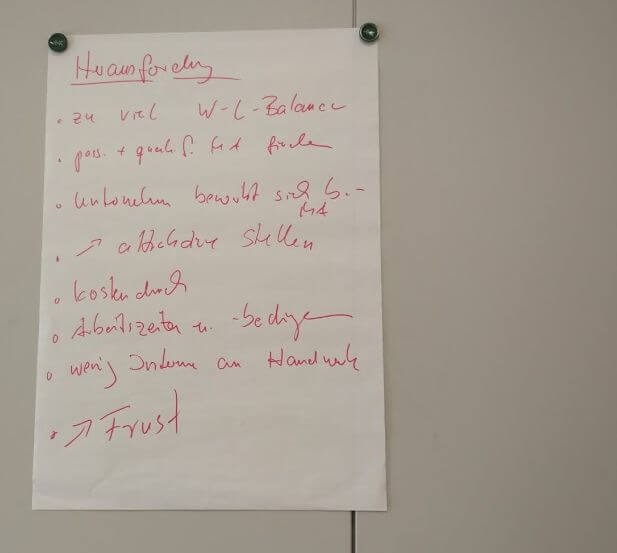 Herausforderung
• zu viel W-L-Balance
• pass. + qualif. MA finden
• Unternehmen bewirbt sich b. -
MA
• ↗ attraktive Stellen
• Kostendruck
• Arbeitszeiten u. -bedingungen
• wenig Interesse an Handwerk
• ↗ Frust